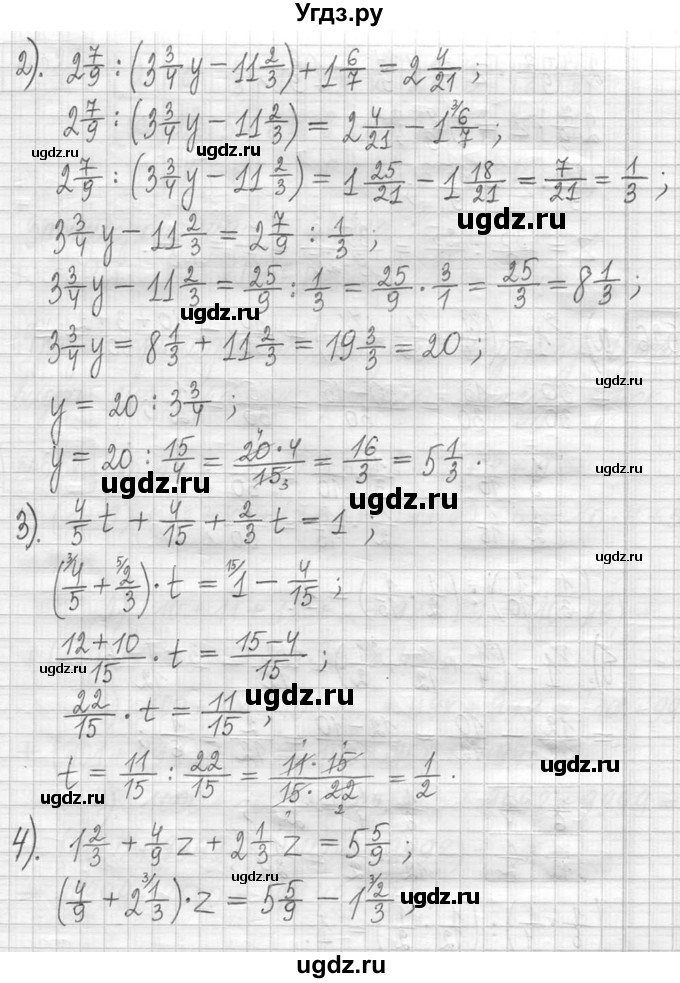 Угдз.ру
2). 2 7/9 : (3 3/4 y − 11 2/3) + 1 6/7 = 2 4/21 ;
2 7/9 : (3 3/4 y − 11 2/3) = 2 4/21 − 1 ³⁾6/7 ;
ugdz.ru ugdz.ru
2 7/9 : (3 3/4 y − 11 2/3) = 1 25/21 − 1 18/21 = 7/21 = 1/3 ;
ugdz.ru
3 3/4 y − 11 2/3 = 2 7/9 : 1/3 ;
3 3/4 y − 11 2/3 = 25/9 : 1/3 = 25/9 · 3/1 = 25/3 = 8 1/3 ;
ugdz.ru
3 3/4 y = 8 1/3 + 11 2/3 = 19 3/3 = 20 ;
ugdz.ru
y = 20 : 3 3/4 ;
y = 20 : 15/4 = 20 · 4/15 = 16/3 = 5 1/3 .
4
3
ugdz.ru ugdz.ru ugdz.ru
3). 4/5 t + 4/15 + 2/3 t = 1 ;
(³⁾4/5 + ⁵⁾2/3) · t = ¹⁵⁾1 − 4/15 ;
ugdz.ru
12+10/15 · t = 15−4/15 ;
ugdz.ru ugdz.ru
22/15 · t = 11/15 ;
t = 11/15 : 22/15 = 11 · 15/15 · 22 = 1/2 .
1 1
1 2
ugdz.ru ugdz.ru
4). 1 2/3 + 4/9 z + 2 1/3 z = 5 5/9 ;
ugdz.ru
(4/9 + 2 ³⁾1/3) · z = 5 5/9 − 1 ³⁾2/3 ;
ugdz.ru ugdz.ru
ugdz.ru